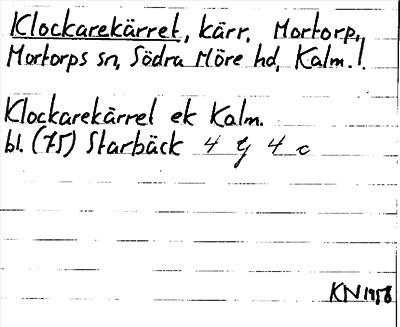 Klockarekärret, kärr, Mortorp,
Mortorps sn, Södra Möre hd, Kalm. l.
Klockarekärret ek Kalm.
bl. (75) Starbäck 4 g 4 c
KN 1958